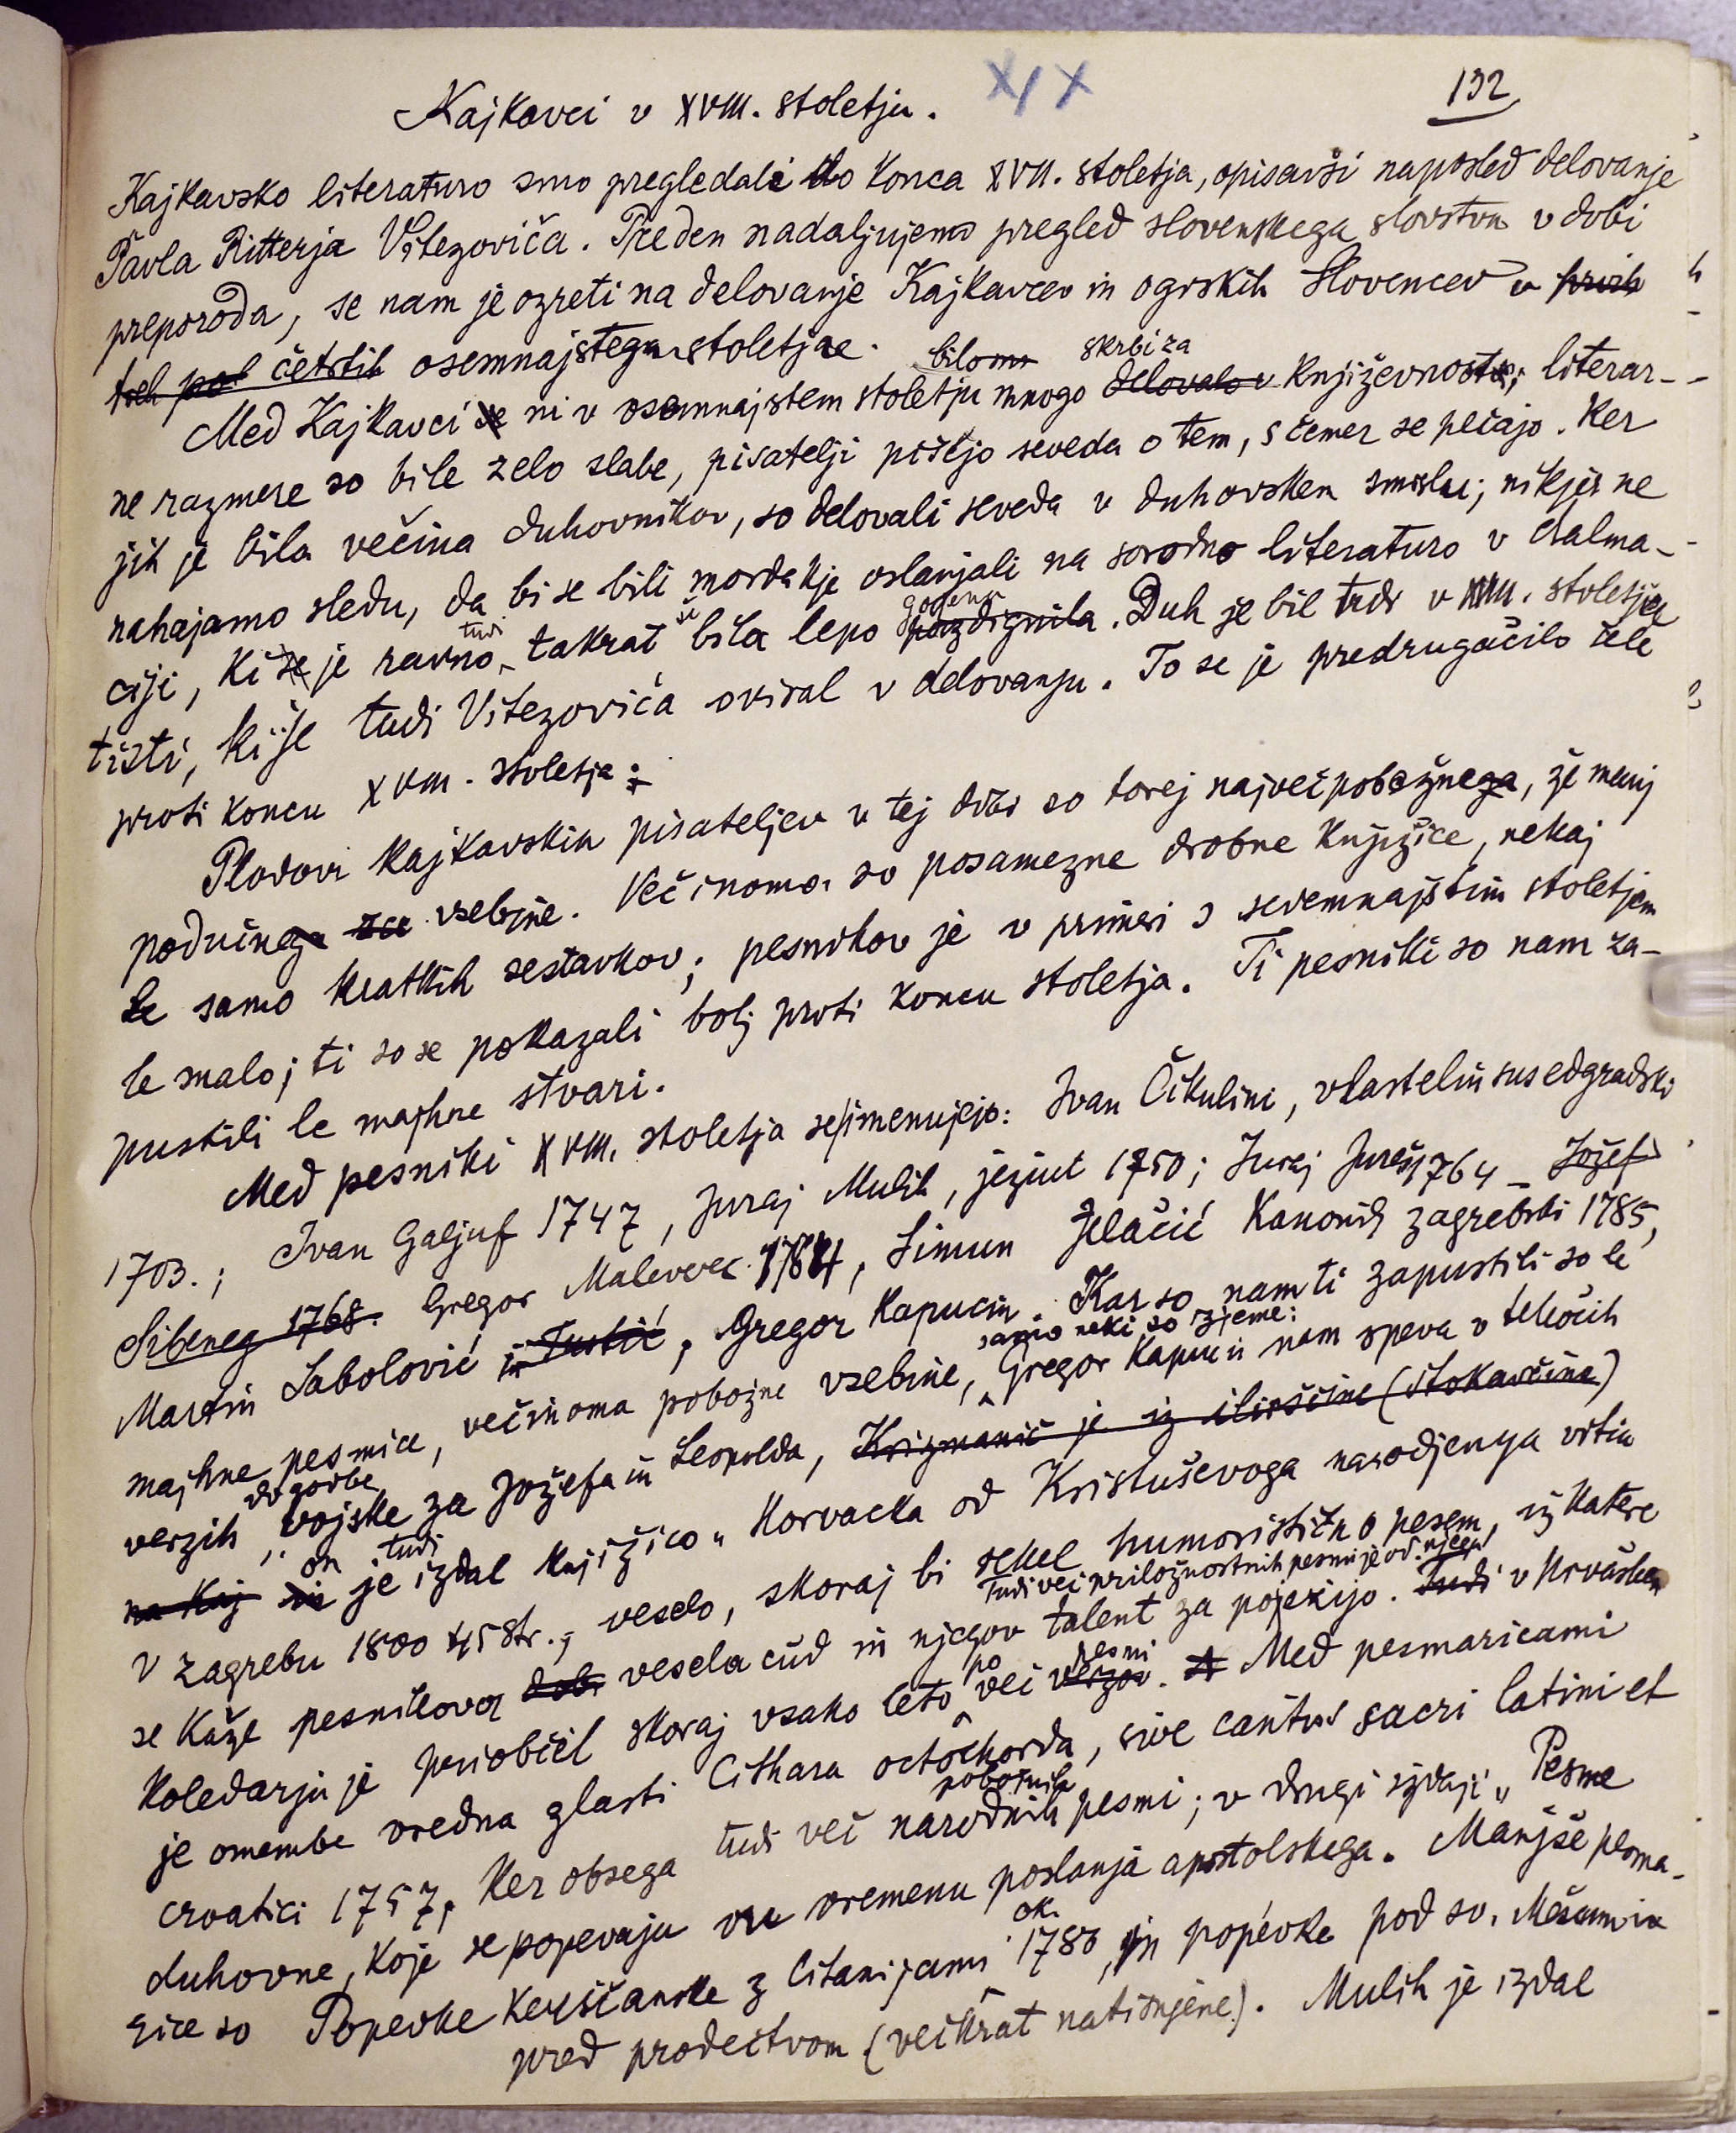 XIX
132
Kajkavci v XVIII. stoletju.
Kajkavsko literaturo smo pregledali do konca XVII. stoletja, opisavši naposled delovanje
Pavla Ritterja Vitezoviča. Preden nadaljujemo pregled slovenskega slovstva v dobi
preporoda, se nam je ozreti na delovanje Kajkavcev in ogrskih Slovencev v prvih
treh pol četrtih osemnajstega stoletja.
bilo skrbi za
Med Kajkavci se ni v osemnajstem stoletju mnogo delovalo v književnosti; literar-
ne razmere so bile zelo slabe, pisatelji pišejo seveda o tem, s čemer se pečajo. Ker
jih je bila večina duhovnikov, so delovali seveda v duhovskem smislu; nikjer ne
nahajamo sledu, da bi se bili morda kje oslanjali na sorodno literaturo v Dalma-
tudi še gojena
ciji, ki se je ravno takrat bila lepo pozdignila. Duh je bil tudi v XVIII. stoletju
tisti, ki je tudi Vitezovića oviral v delovanju. To se je predrugačilo šele
proti koncu XVIII. stoletja.
Plodovi kajkavskih pisateljev v tej dobi so torej največ pobožnega, že manj
podučnega vsebine. Večinoma so posamezne drobne knjižice, nekaj
le samo kratkih sestavkov; pesnikov je v primeri s sedemnajstim stoletjem
le malo; ti so se pokazali bolj proti koncu stoletja. Ti pesniki so nam za-
pustili le majhne stvari.
Med pesniki XVIII. stoletja se imenujejo: Ivan Čikulini, vlastelin susedgradski
1703.; Ivan Galjuf 1747, Juraj Mulih, jezuit 1750; Juraj Jureš 1764 – Jožef
Sibeneg 1768. Gregor Malevec 1784, Simun Jelačić kanonik zagrebski 1785,
Martin Sabolović in Justić, Gregor Kapucin. Kar so nam ti zapustili so le
samo neki so izjeme:
majhne pesmice, večinoma pobožne vsebine, Gregor Kapucin nam speva v tekočih
dogodbe
verzih vojske za Jožefa in Leopolda, Krizmanič je iz ilirščine (štokavčine)
on tudi
na kaj in je izdal knjižico „Horvacka od Kristuševoga narodjenja vrtia
v Zagrebu 1800 45 str.; veselo, skoraj bi rekel humoristično pesem, iz katere
Tudi več priložnostnih pesmi je od njega
se kaže pesnikova vesela čud in njegov talent za pojezijo. Tudi v Hrvaškem
po pesmi
koledarju je priobčil skoraj vsako leto več verzov. Med pesmaricami
je omembe vredna glasti Cithara octochorda, sive cantus sacri latini et
pobožnih
croatici 1757, ker obsega tudi več narodnih pesmi; v drugi izdaji „Pesme
duhovne, koje se popevaju vu vremenu poslanja apostolskega. Manjše pesma-
ok.
rice so Popevke kerščanske z litanijami 1780, in popévke pod sv. Mešum in
pred prodečtvom (večkrat natisnjene). Mulih je izdal